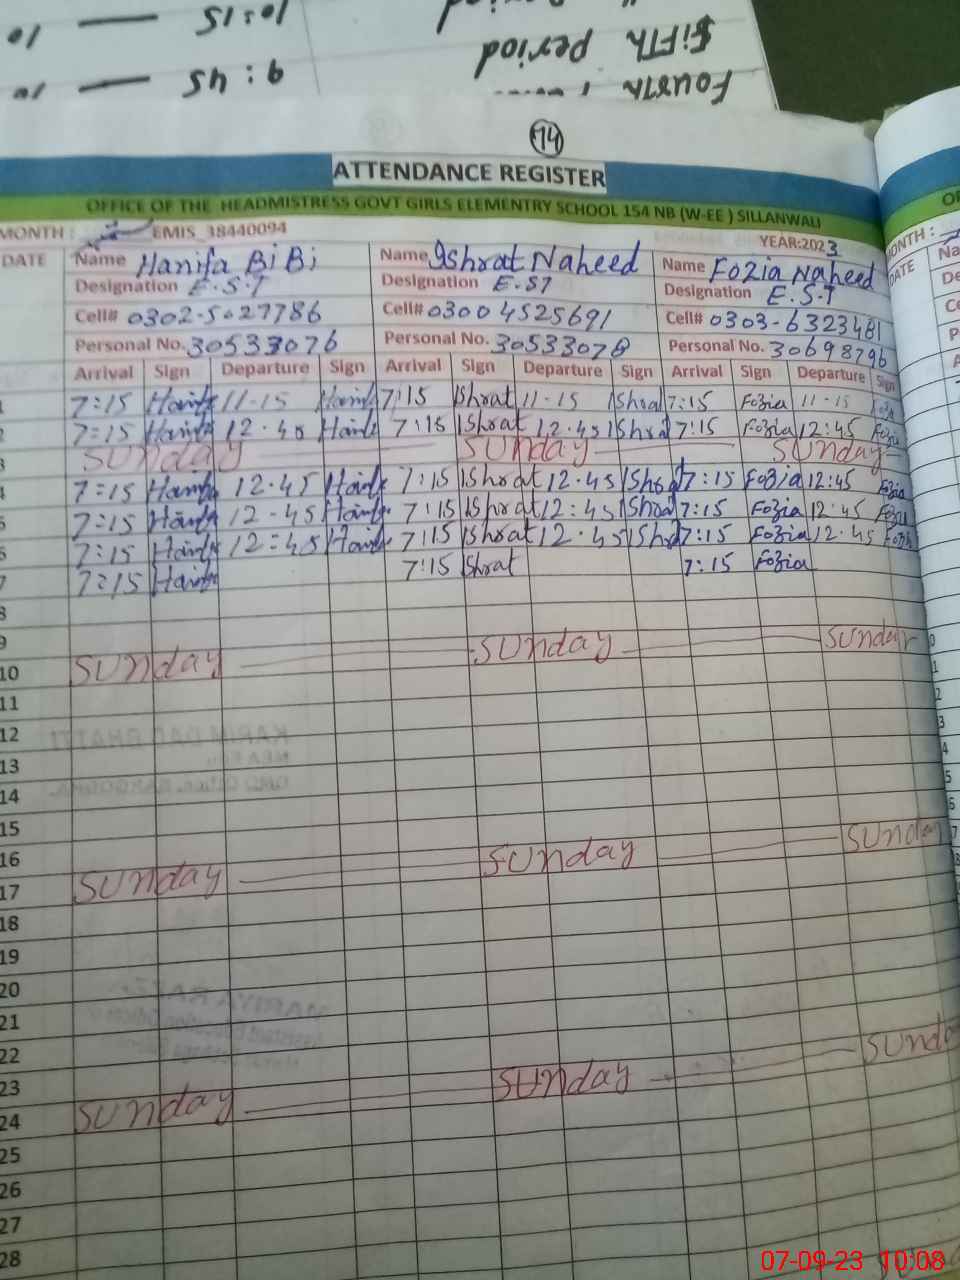 10:15 — 10
Fifth period
9:45 — 10
Fourth
74
ATTENDANCE REGISTER
OFFICE OF THE HEADMISTRESS GOVT GIRLS ELEMENTRY SCHOOL 154 NB (W-EE ) SILLANWALI
MONTH : EMIS_38440094 YEAR:2023
DATE Name Hanifa BiBi Name Ishrat Naheed Name Fozia Naheed
Designation E.S.T Designation E.ST Designation E.S.T
Cell# 0302-5027786 Cell# 0300 4525691 Cell# 0303-6323481
Personal No. 30533076 Personal No. 30533078 Personal No. 30698796
Arrival Sign Departure Sign Arrival Sign Departure Sign Arrival Sign Departure Sign
1 7:15 Hanifa 11-15 Hanifa 7:15 Ishrat 11-15 Ishrat 7:15 Fozia 11-15 Fozia
2 7=15 Hanifa 12.45 Hanifa 7:15 Ishrat 12.45 Ishrat 7:15 Fozia 12:45 Fozia
3 SUnday SUnday SUnday
4 7:15 Hanifa 12.45 Hanifa 7:15 Ishrat 12.45 Ishrat 7:15 Fozia 12:45 Fozia
5 7:15 Hanifa 12-45 Hanifa 7:15 Ishrat 12:45 Ishrat 7:15 Fozia 12.45 Fozia
6 7:15 Hanifa 12=45 Hanifa 7:15 Ishrat 12.45 Ishrat 7:15 Fozia 12.45 Fozia
7 7=15 Hanifa 7:15 Ishrat 7:15 Fozia
8
9
10 SUnday SUnday SUnday
11
12
13
14
15
16
17 SUnday SUnday SUnday
18
19
20
21
22
23
24 SUnday SUnday SUnday
25
26
27
28
MONTH :
DATE
07-09-23 10:08